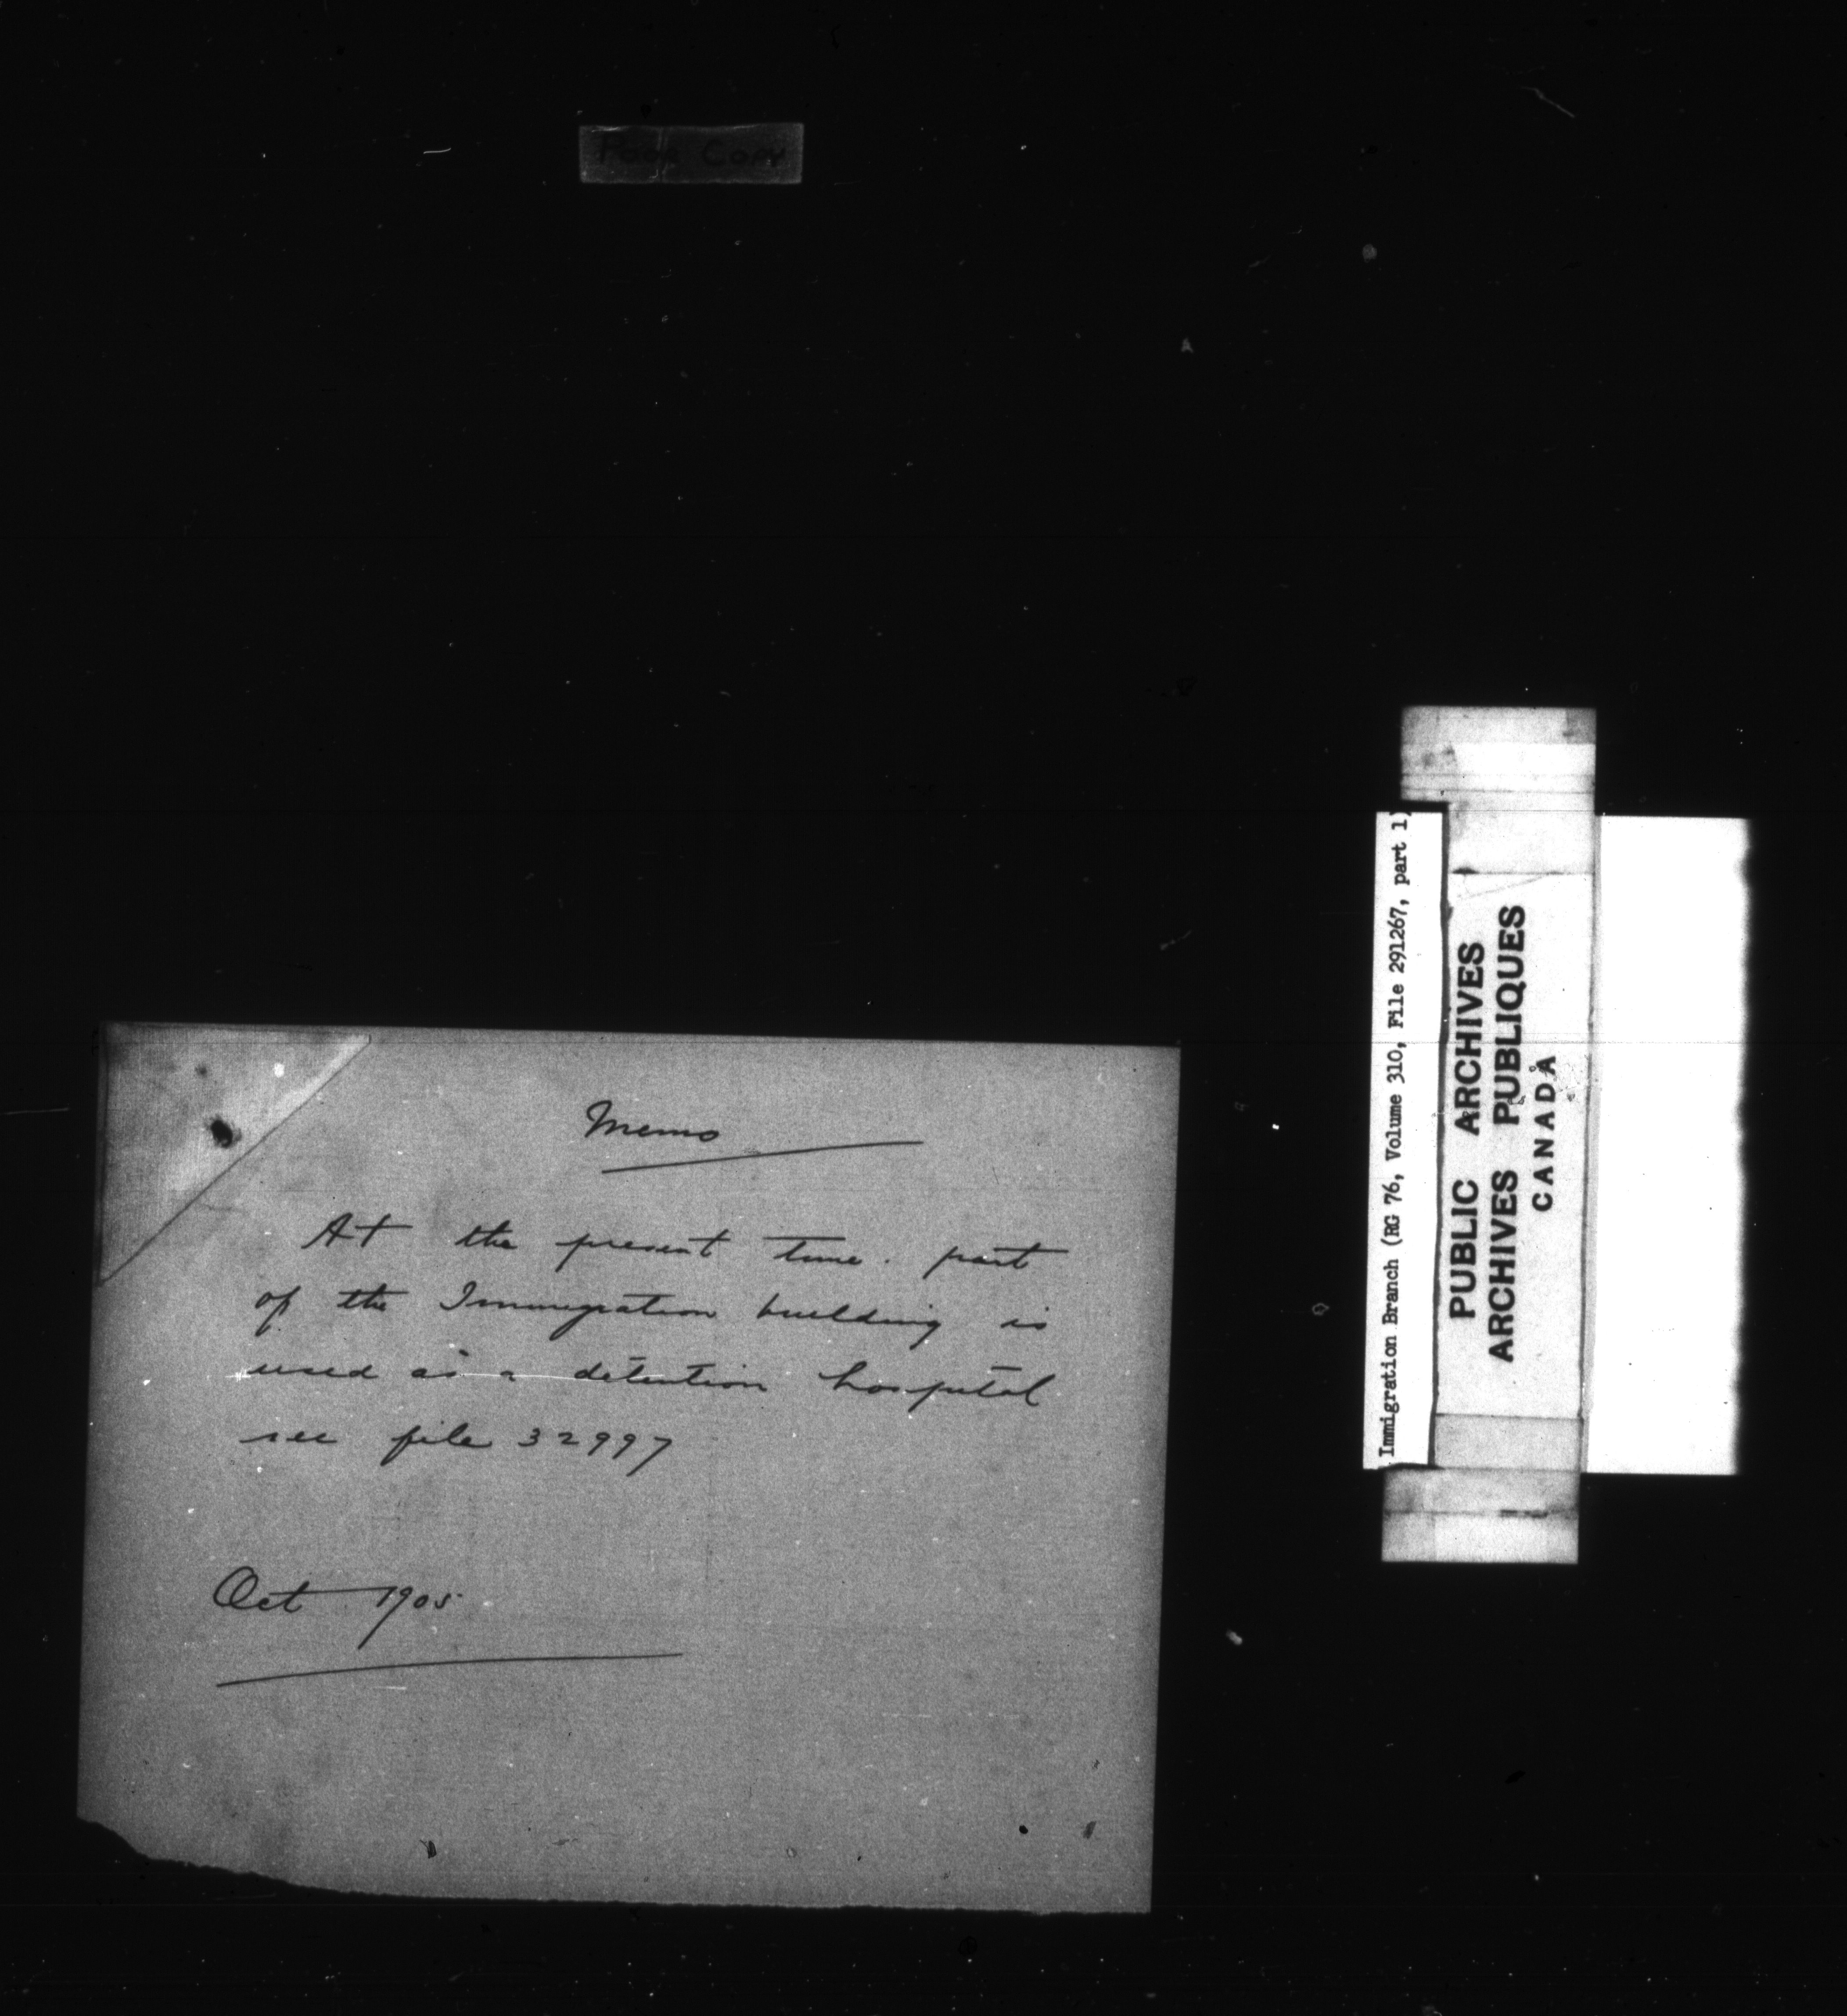 Poor Copy
Memo
At the present time. part
of the Immigration building is
used as a detention hospital
see file 32997
Oct 1905
Immigration Branch (RG 76, Volume 310, File 291267, part 1)
PUBLIC ARCHIVES
ARCHIVES PUBLIQUES
CANADA